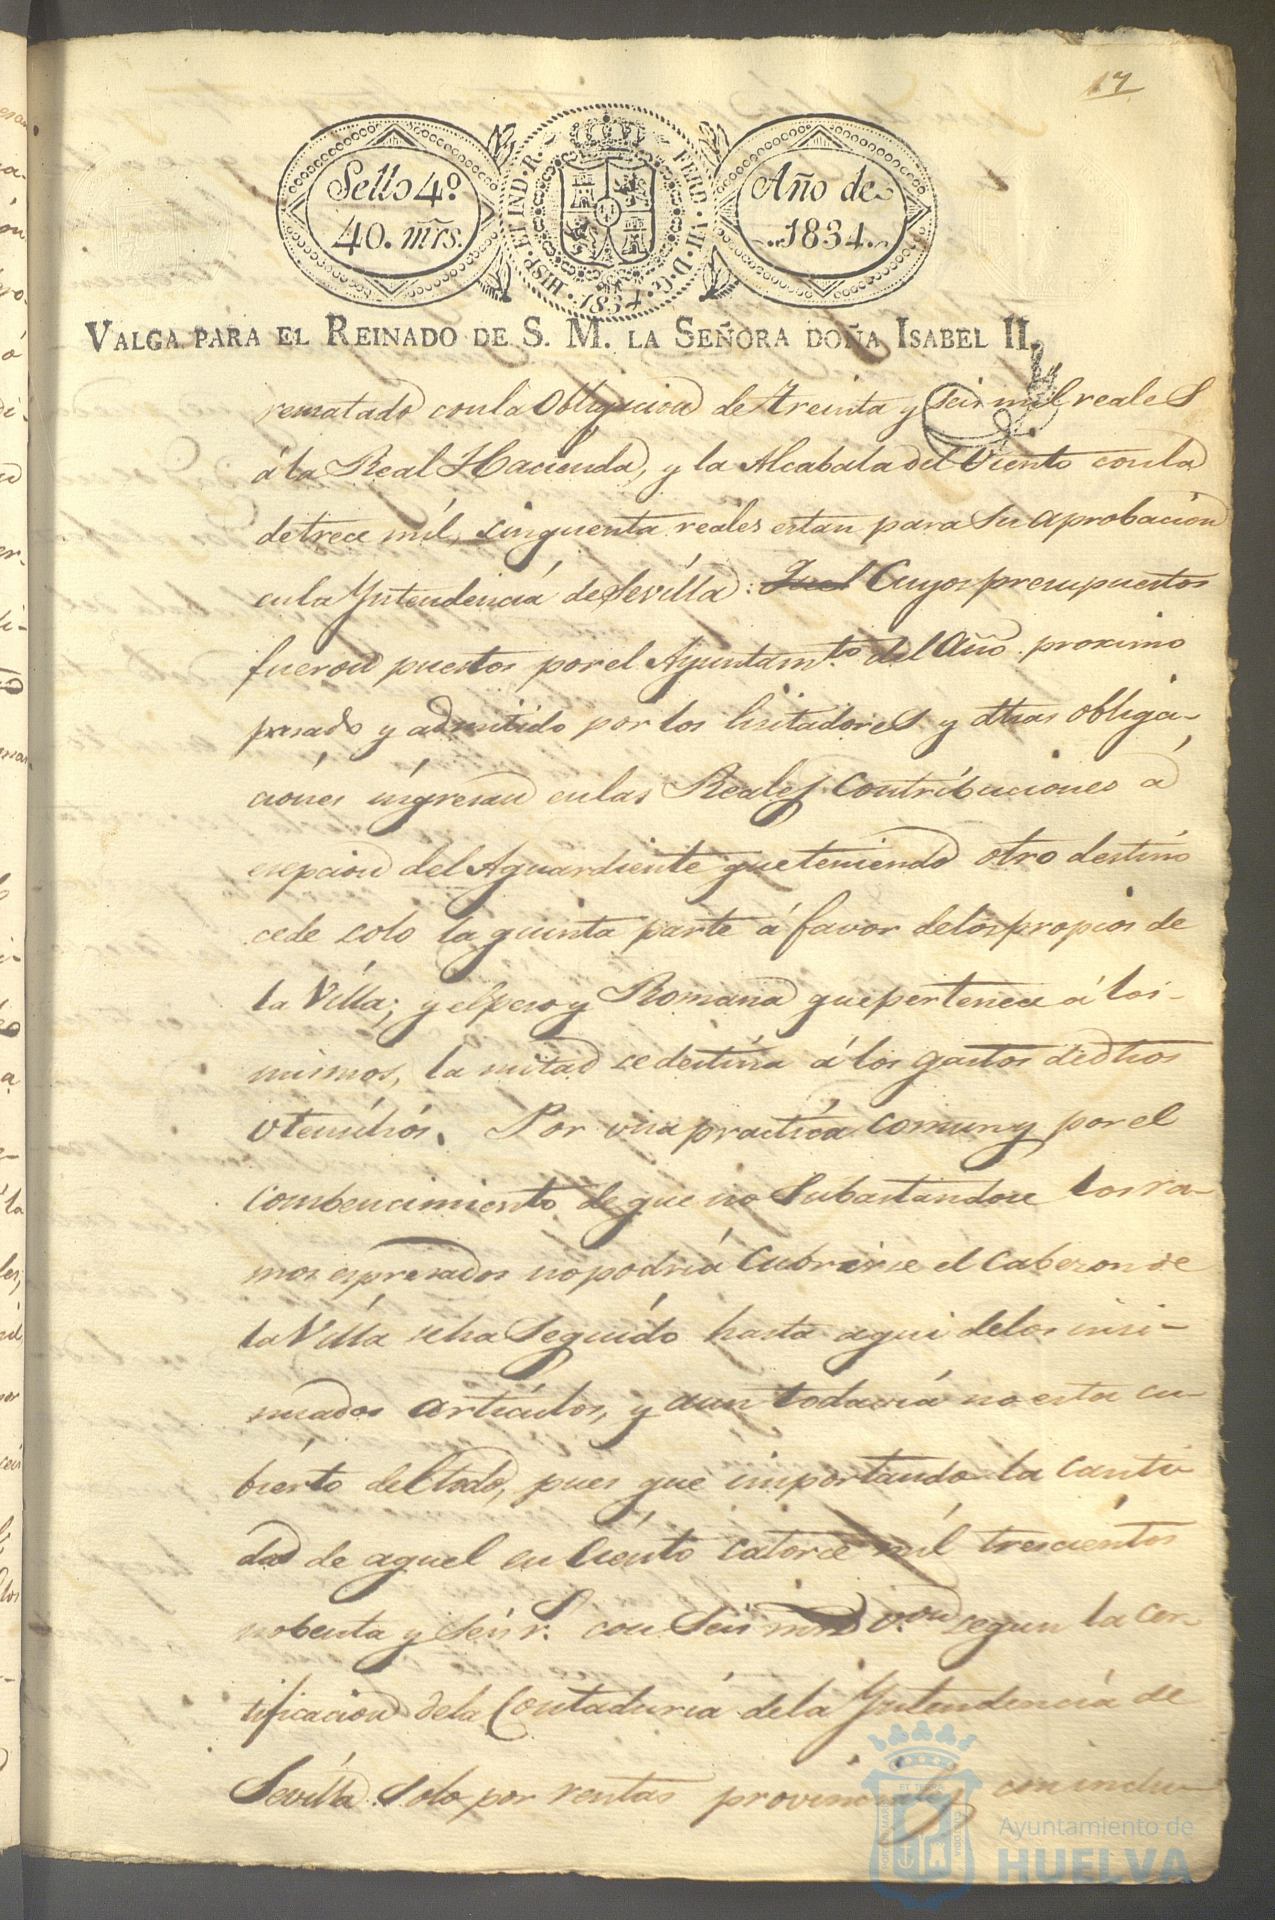 17
Sello 4º
40. mrs.
HISP. ET IND. R. FERD. VII. D. G. 1834.
Año de
1834.
VALGA PARA EL REINADO DE S. M. LA SEÑORA DOÑA ISABEL II.
rematado con la Obligacion de Treinta y seis mil reales
á la Real Hacienda, y la Alcabala del Viento con la
de trece mil, cinquenta reales estan para su aprobacion
en la Yntendencia de Sevilla: Cuyos presupuestos
fueron puestos por el Ayuntamto. del Año proximo
pasado y admitido por los lisitadores y dhas obliga-
ciones ingresan en las Reales Contribuciones á
esepcion del Aguardiente que teniendo otro destino
cede solo la quinta parte á favor de los propios de
la Villa; y el peso y Romana que pertenece á los
mismos, la mitad se destina á los gastos de dhos
utencilios. Por una practica comun y por el
combencimiento de que no Subastandose los ra-
mos espresados no podria Cubrirse el Cabezon de
la Villa se ha Seguido hasta aqui de los insi-
nuados articulos, y aun todavia no esta cu-
bierto del todo, pues que importando la canti-
dad de aquel en Ciento catorce mil trescientos
nobenta y seis r. con Seis mrs von segun la cer-
tificacion de la Contaduria de la Yntendencia de
Sevilla Solo por rentas provinciales con inclu-
Ayuntamiento de
HUELVA